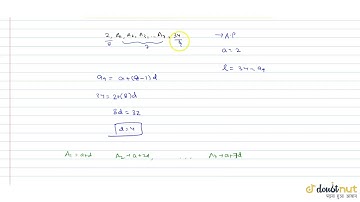 2, A₁, A₂, A₃, ..., A₇, 34 → A.P
a 7
a = 2
a₉ = a+(9-1)d l = 34 = a₉
34 = 2+(8)d
8d = 32
d = 4
A₁ = a+d A₂ = a+2d, . . . . A₇ = a+7d
doubtnut